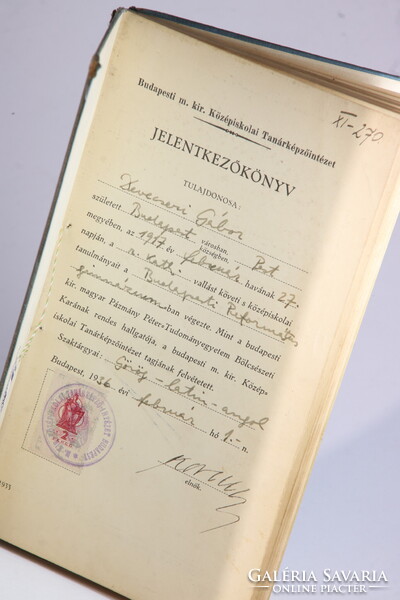 Budapesti m. kir. Középiskolai Tanárképzőintézet
XI-270
JELENTKEZŐKÖNYV
TULAJDONOSA:
Devecseri Gábor
született Budapest városban, Pest
községben,
megyében, az 1917 év február havának 27.
napján, a r. kath. vallást követi s középiskolai
tanulmányait a Budapesti Református
gimnáziumban végezte. Mint a budapesti
kir. magyar Pázmány Péter-Tudományegyetem Bölcsészeti
Karának rendes hallgatója, a budapesti m. kir. Közép-
iskolai Tanárképzőintézet tagjának felvétetett.
Szaktárgyai: Görög-latin-angol
Budapest, 1936 évi február hó 1.-n.
elnök.
GALÉRIA SAVARIA
ONLINE PIACTÉR